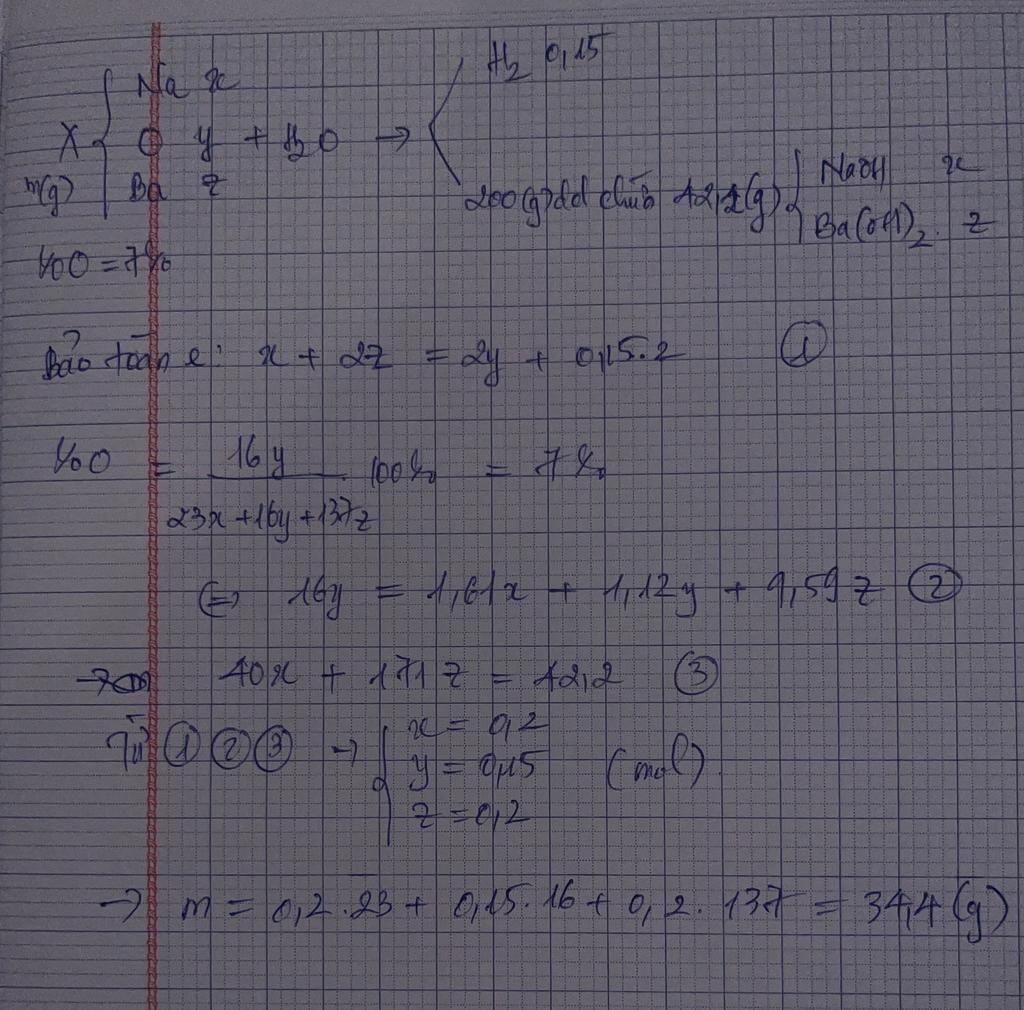 H₂ 0,15
Na x
X { O y + H₂O →
m(g) Ba z
200(g) dd chứa 42,2(g) { NaOH x
Ba(OH)₂ z
%O = 7%
Bảo toàn e: x + 2z = 2y + 0,15.2 ①
%O = 16y / 23x+16y+137z 100% = 7%
⇔ 16y = 1,61x + 1,12y + 9,59z ②
→ 40x + 171z = 42,2 ③
Từ ① ② ③ → { x = 0,2
y = 0,15 (mol)
z = 0,2
→ m = 0,2.23 + 0,15.16 + 0,2.137 = 34,4(g)